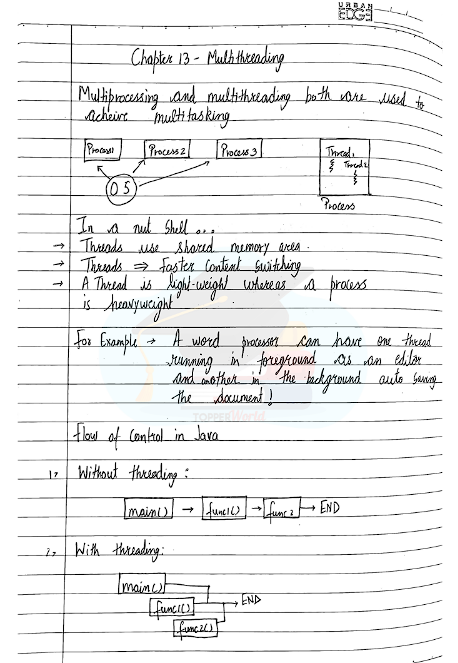 URBAN
EDGE
Chapter 13 - Multithreading
Multiprocessing and multithreading both are used to
acheive multitasking
Process1 Process 2 Process 3
OS
Thread1
Thread2
Process
In a nut shell...
→ Threads use shared memory area.
→ Threads ⇒ Faster Content switching
→ A Thread is light-weight whereas a process
is heavyweight.
For Example → A word processor can have one thread
running in foreground as an editor
and another in the background auto saving
the document!
TOPPERWorld
Flow of control in Java
1> Without threading:
main() → func1() → func2 → END
2> With threading:
main()
func1() → END
func2()